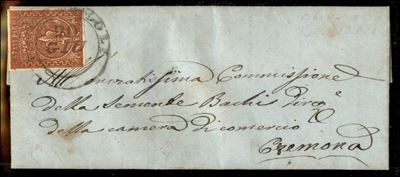 GIU
All' Onoratissima Commissione
della Semente Bachi
della camera di comercio
Cremona